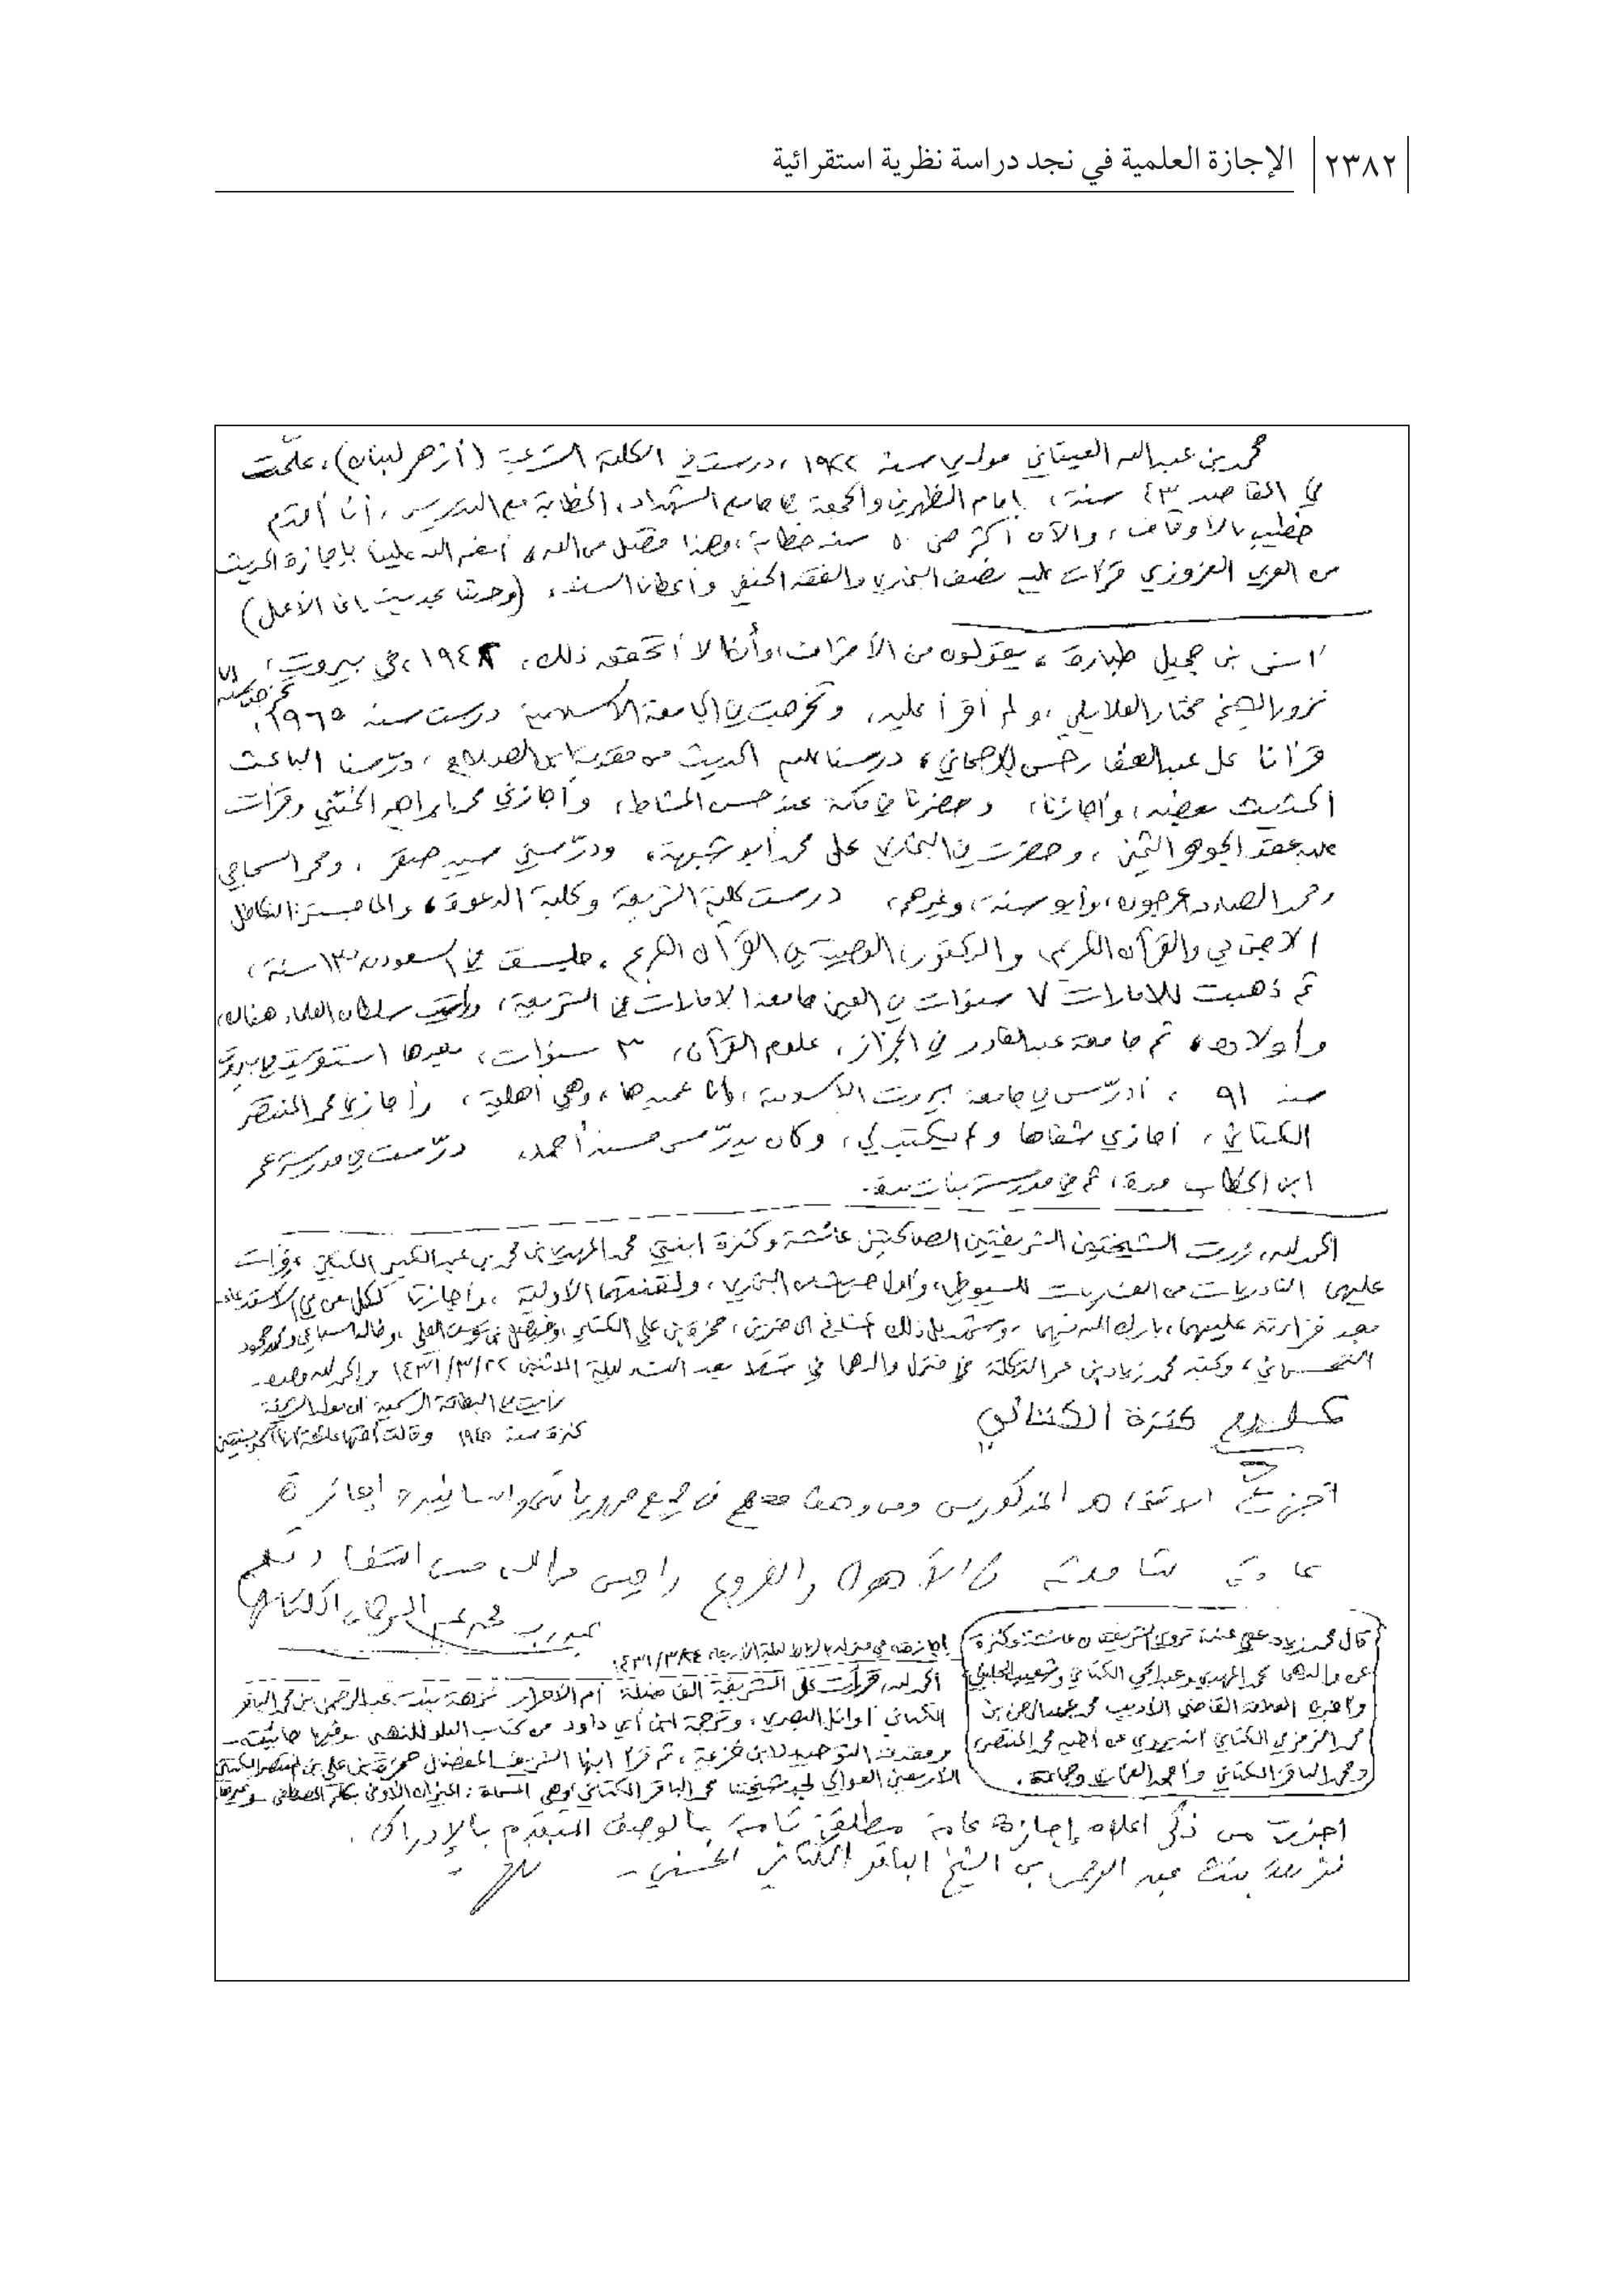 ٢٣٨٢ الإجازة العلمية في نجد دراسة نظرية استقرائية
محمد بن عبدالله العيتاني مولدي سنة ١٩٢٢، درست في الكلية الشرعية (أزهر لبنان)، علّمت
في المقاصد ٤٣ سنة، إمام الظهرين والجمعة جامع الشهداء، الخطابة مع التدريس، أنا أقدم
خطيب بالأوقاف، والآن أكثر من ٥٠ سنة خطابة، وهذا فضل من الله، أنعم الله علينا بإجازة الحديث
من العربي العزوزي قرأت عليه نصف البخاري والفقه الحنفي وأعطانا السند، (وحدثنا بحديث إنما الأعمال)
بن جميل طبارة، يقولون من الأمرات، وأنا لا أتحقق ذلك، ١٩٤٨، في بيروت،
نزور الشيخ مختار العلايلي، ولم أقرأ عليه، وتخرجت من الجامعة الإسلامية درست سنة ١٩٦٥،
قرأنا على عبدالغفار حسن الرحماني، درسنا عليه الحديث من مقدمة ابن الصلاح، ودرّسنا الباعث
الحثيث بعضه، وأجازنا، وحضرنا في مكة عند حسن المشاط، وأجازني محمد إبراهيم الختني وقرأت
عليه عقد الجوهر الثمين، وحضرت في البخاري على محمد أبو شهبة، ودرّسني سيد صقر، ومحمد السماحي
ومحمد الصادق عرجون، وأبو سنة، وغيرهم، درست كلية الشريعة وكلية الدعوة، والماجستير: التكافل
الاجتماعي والقرآن الكريم، والدكتوراه الوصية في القرآن الكريم، في السعودية ١٣ سنة،
ثم ذهبت للإمارات ٧ سنوات في العين جامعة الإمارات في الشريعة، سلطان العلماء هناك،
وأولاده، ثم جامعة عبدالقادر في الجزائر، علوم القرآن، ٣ سنوات، بعدها استقريت في بيروت
سنة ٩١، أدرّس في جامعة بيروت الإسلامية، وأنا عميدها، وهي أهلية، وأجازني محمد المنتصر
الكتاني، أجازني شفاها ولم يكتب لي، وكان يدرّس مسند أحمد، درّست في مدرسة عمر
ابن الخطاب مدة، ثم في مدرسة بنات مدة.
الحمد لله، زرت الشيختين الشريفتين الصالحتين عائشة وكنزة ابنتي محمد المهدي بن محمد بن عبدالكبير الكتاني، وقرأت
عليهما النادريات من العشريات للسيوطي، وأول حديث من البخاري، ولقنتهما الأولية، وأجازتا لكل من في الاستدعاء
بعد قراءته عليهما، بارك الله فيهما، وشهد على ذلك الحاضرين، حمزة بن علي الكتاني، وخالد السباعي ومحمد محمود
وكتبه محمد زياد بن عمر التكلة في منزل والدهما في سلا بعد العشاء ليلة الاثنين ١٤٣١/٣/٢٢ والحمد لله وحده.
رأيت في البطاقة الرسمية أن مولد الشريفة
كنزة سنة ١٩٤٥ وقالت أختها عائشة إنها أكبر بسنتين
كنزة الكتاني
أجزت المذكورين جميع مروياتي وأسانيده إجازة
عامة تامة
قال محمد زياد عفي عنه: تروي الشريفتان عائشة وكنزة
عن والدهما محمد المهدي وعبدالحي الكتاني وشعيب الجليلي
وأخبرنا العلامة القاضي الأديب محمد عبدالرحمن بن
محمد الزمزمي الكتاني أنه يروي عن أخيه محمد المنتصر
ومحمد الباقر الكتاني وأحمد الغماري وجماعة.
أجازنا في منزله بالرباط ليلة الأربعاء ١٤٣١/٣/٢٤
الحمد لله، قرأت على الشريفة الفاضلة أم الأحرار نزهة بنت عبدالرحمن بن محمد الباقر
الكتاني أوائل البصري، وترجمة ابن أبي داود من كتاب العلو للذهبي
ومقدمة التوحيد لابن خزيمة، ثم قرأ ابنها الشريف المفضال حمزة بن علي بن المنتصر الكتاني
الأربعين العوالي لجد شيختنا محمد الباقر الكتاني
أجزت من ذكر أعلاه إجازة عامة مطلقة تامة بالوصف المتقدم بالإدراك.
نزهة بنت عبد الرحمن بن الشيخ الباقر الكتاني الحسني